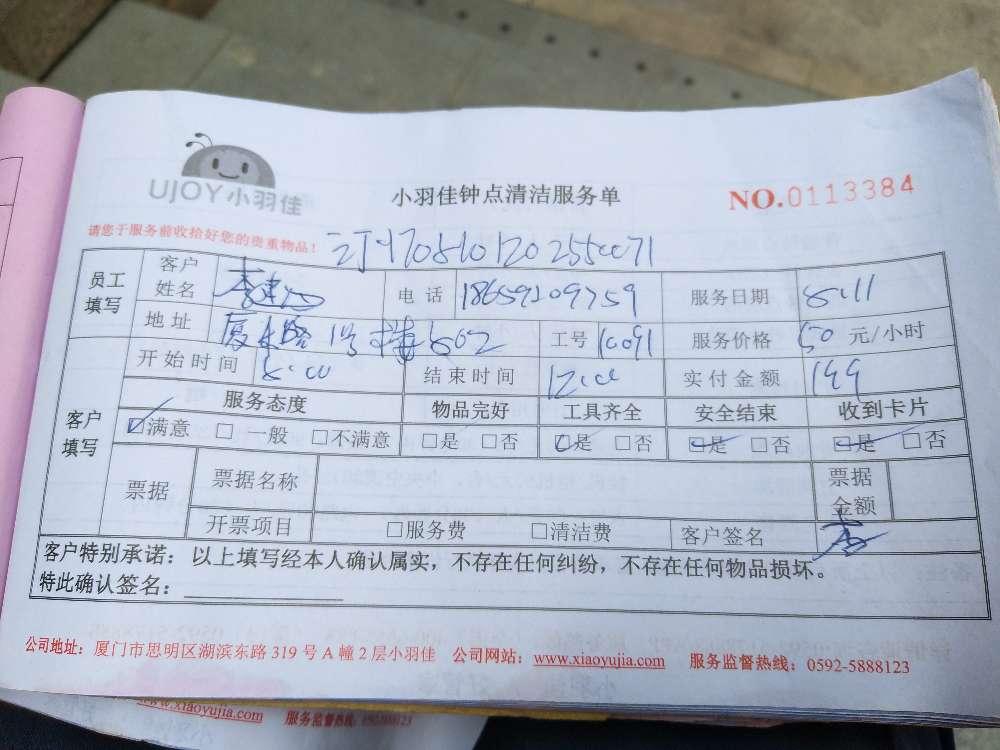 UJOY小羽佳
小羽佳钟点清洁服务单
NO.0113384
请您于服务前收拾好您的贵重物品!
订1708101202550071
员工填写 客户姓名 李 电话 18659209759 服务日期 8.11
地址 厦禾路 1号楼602 工号 10091 服务价格 50 元/小时
客户填写 开始时间 8:00 结束时间 12:00 实付金额 199
服务态度 物品完好 工具齐全 安全结束 收到卡片
☑满意 □ 一般 □不满意 □是 □否 ☑是 □否 ☑是 □否 ☑是 □否
票据 票据名称 票据金额
开票项目 □服务费 □清洁费 客户签名 李
客户特别承诺: 以上填写经本人确认属实,不存在任何纠纷,不存在任何物品损坏。
特此确认签名:
公司地址: 厦门市思明区湖滨东路 319 号 A 幢 2 层小羽佳 公司网站: www.xiaoyujia.com 服务监督热线: 0592-5888123
www.xiaoyujia.com 服务监督热线: